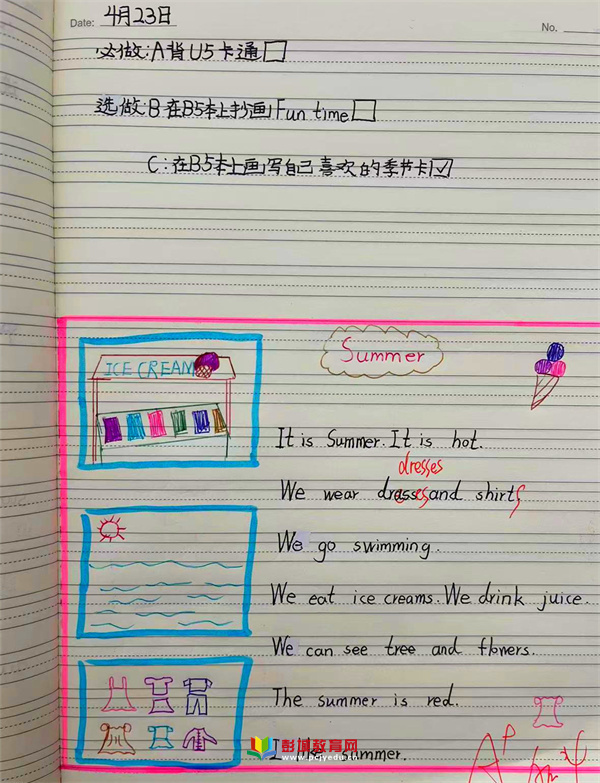 Date: 4月23日
No.
必做:A背U5卡通
选做:B在B5本上抄画Fun time
C:在B5本上画写自己喜欢的季节卡
ICE CREAM
Summer
It is Summer. It is hot.
dresses
We wear dresses and shirts
We go swimming.
We eat ice creams. We drink juice.
We can see tree and flowers.
The summer is red.
I like summer.
彭城教育网
www.pcjyedu.